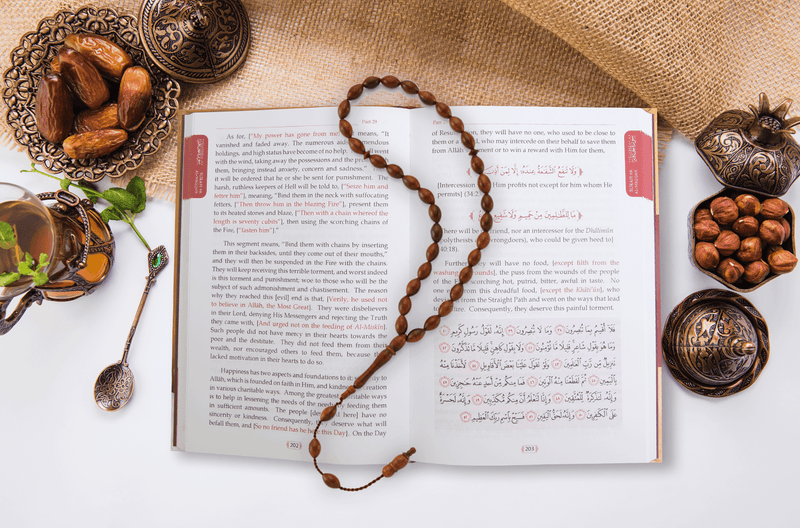 Part 29
As for, ["My power has gone from me"] means, "It
vanished and faded away. The numerous and tremendous
holdings, and high status have become of no help. I
with the wind, taking away the possessions and the
them, bringing instead anxiety, concern and sadness."
it will be ordered that he or she be sent for punishment. The
harsh, ruthless keepers of Hell will be told to, ["seize him and
fetter him"], meaning, "Bind them in the neck with suffocating
fetters, ["Then throw him in the blazing Fire"], present them
to its heated stones and blaze, ["Then with a chain whereof the
length is seventy cubits"], then using the scorching chains of
the Fire, ["fasten him"]."
This segment means, "Bind them with chains by inserting
them in their backsides, until they come out of their mouths,"
and they will then be suspended in the Fire with the chains.
They will keep receiving this terrible torment, and worst indeed
is this torment and punishment; woe to those who will be the
subject of such admonishment and chastisement. The reason
why they reached this [evil] end is that, [Verily, he used not
to believe in Allâh, the Most Great]. They were disbelievers
in their Lord, denying His Messengers and rejecting the Truth
they came with, [And urged not on the feeding of Al-Miskîn].
Such people did not have mercy in their hearts towards the
poor and the destitute. They did not feed them from their
wealth, nor encouraged others to feed them, because they
lacked motivation in their hearts to do so.
Happiness has two aspects and foundations to it: sincerity to
Allâh, which is founded on faith in Him, and kindness to creation
in various charitable ways. Among the greatest charitable ways
is to help in lessening the needs of the needy by feeding them
in sufficient amounts. The people [described here] have no
sincerity or kindness. Consequently, they deserve what will
befall them, and [So no friend has he here this Day]. On the Day
202
of Resurrection, they will have no one, who used to be close to
them or a friend, who may intercede on their behalf to save them
from Allâh's torment or to win a reward with Him for them,
﴿ وَلَا تَنفَعُ الشَّفَاعَةُ عِندَهُ إِلَّا لِمَنْ أَذِنَ لَهُ ﴾
[Intercession with Him profits not except for him whom He
permits] (34:23)
﴿ مَا لِلظَّالِمِينَ مِنْ حَمِيمٍ وَلَا شَفِيعٍ ﴾
[There will be no friend, nor an intercessor for the Dhâlimûn
(polythesits and wrongdoers), who could be given heed to]
(40:18).
Further, they will have no food, [except filth from the
washing of wounds], the puss from the wounds of the people
of the Fire, scorching hot, putrid, bitter, awful in taste. No
one eats from this dreadful food, [except the Khâti'ûn], who
deviate from the Straight Path and went on the ways that lead
to the Fire. Consequently, they deserve this painful torment.
فَلَا أُقْسِمُ بِمَا تُبْصِرُونَ ﴿٣٨﴾ وَمَا لَا تُبْصِرُونَ ﴿٣٩﴾ إِنَّهُ لَقَوْلُ رَسُولٍ كَرِيمٍ ﴿٤٠﴾
وَمَا هُوَ بِقَوْلِ شَاعِرٍ قَلِيلًا مَا تُؤْمِنُونَ ﴿٤١﴾ وَلَا بِقَوْلِ كَاهِنٍ قَلِيلًا مَا تَذَكَّرُونَ ﴿٤٢﴾
تَنزِيلٌ مِن رَّبِّ الْعَالَمِينَ ﴿٤٣﴾ وَلَوْ تَقَوَّلَ عَلَيْنَا بَعْضَ الْأَقَاوِيلِ ﴿٤٤﴾ لَأَخَذْنَا مِنْهُ
بِالْيَمِينِ ﴿٤٥﴾ ثُمَّ لَقَطَعْنَا مِنْهُ الْوَتِينَ ﴿٤٦﴾ فَمَا مِنكُم مِّنْ أَحَدٍ عَنْهُ حَاجِزِينَ ﴿٤٧﴾
وَإِنَّهُ لَتَذْكِرَةٌ لِّلْمُتَّقِينَ ﴿٤٨﴾ وَإِنَّا لَنَعْلَمُ أَنَّ مِنكُم مُّكَذِّبِينَ ﴿٤٩﴾ وَإِنَّهُ لَحَسْرَةٌ
عَلَى الْكَافِرِينَ ﴿٥٠﴾ وَإِنَّهُ لَحَقُّ الْيَقِينِ ﴿٥١﴾ فَسَبِّحْ بِاسْمِ رَبِّكَ الْعَظِيمِ ﴿٥٢﴾
203